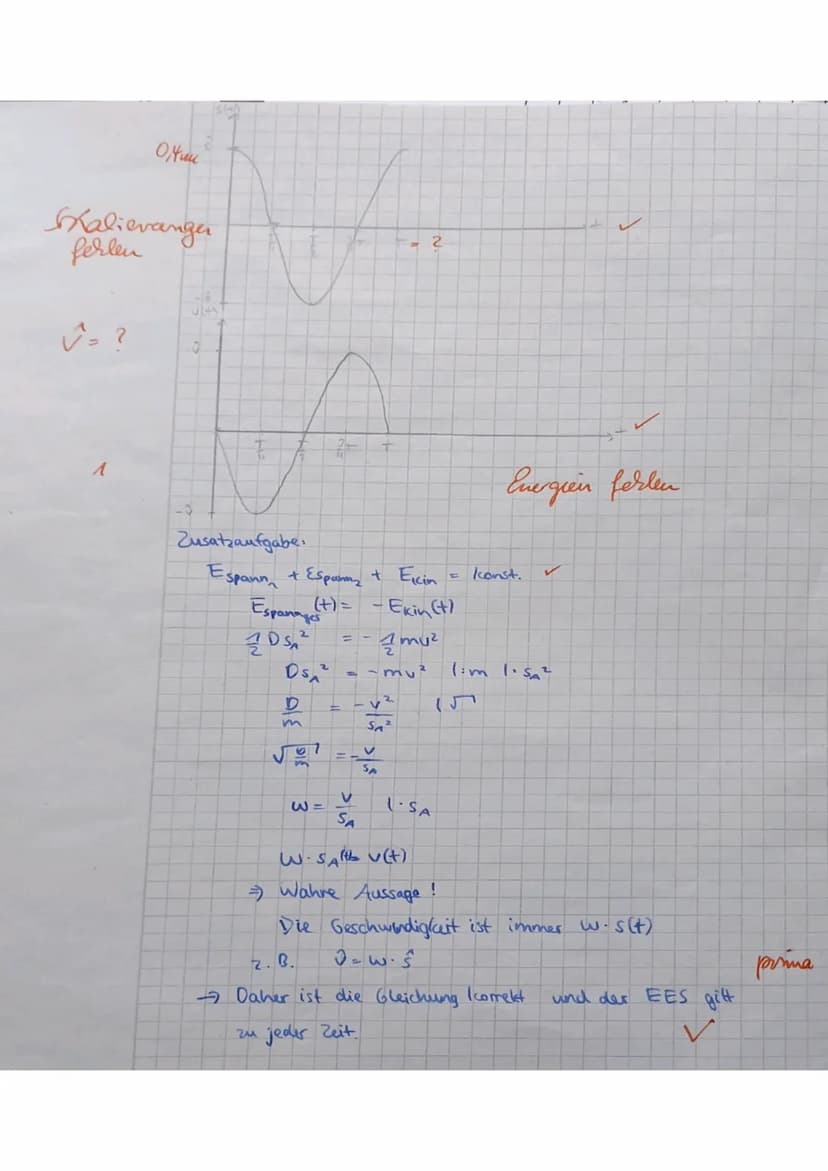 s(t)
0,4m
ŝ
Skalierungen
fehlen
t ✓
T = ?
v(t)
v̂ = ?
v̂
t ✓
T/4 T/2 3/4 T T
1
Energien fehlen
-v̂
Zusatzaufgabe:
E_Spann₁ + E_Spann₂ + E_kin = konst. ✓
E_Spannges (t) = - E_kin (t)
1/2 D s_A² = - 1/2 m v²
D s_A² = - m v² |:m |· s_A²
D/m = - v²/s_A² |√
√D/m = - v/s_A
ω = v/s_A |· s_A
ω · s_A(t) = v(t)
⇒ Wahre Aussage!
Die Geschwindigkeit ist immer ω · s(t)
z. B. v̂ = ω · ŝ
prima
→ Daher ist die Gleichung korrekt und der EES gilt
zu jeder Zeit. ✓